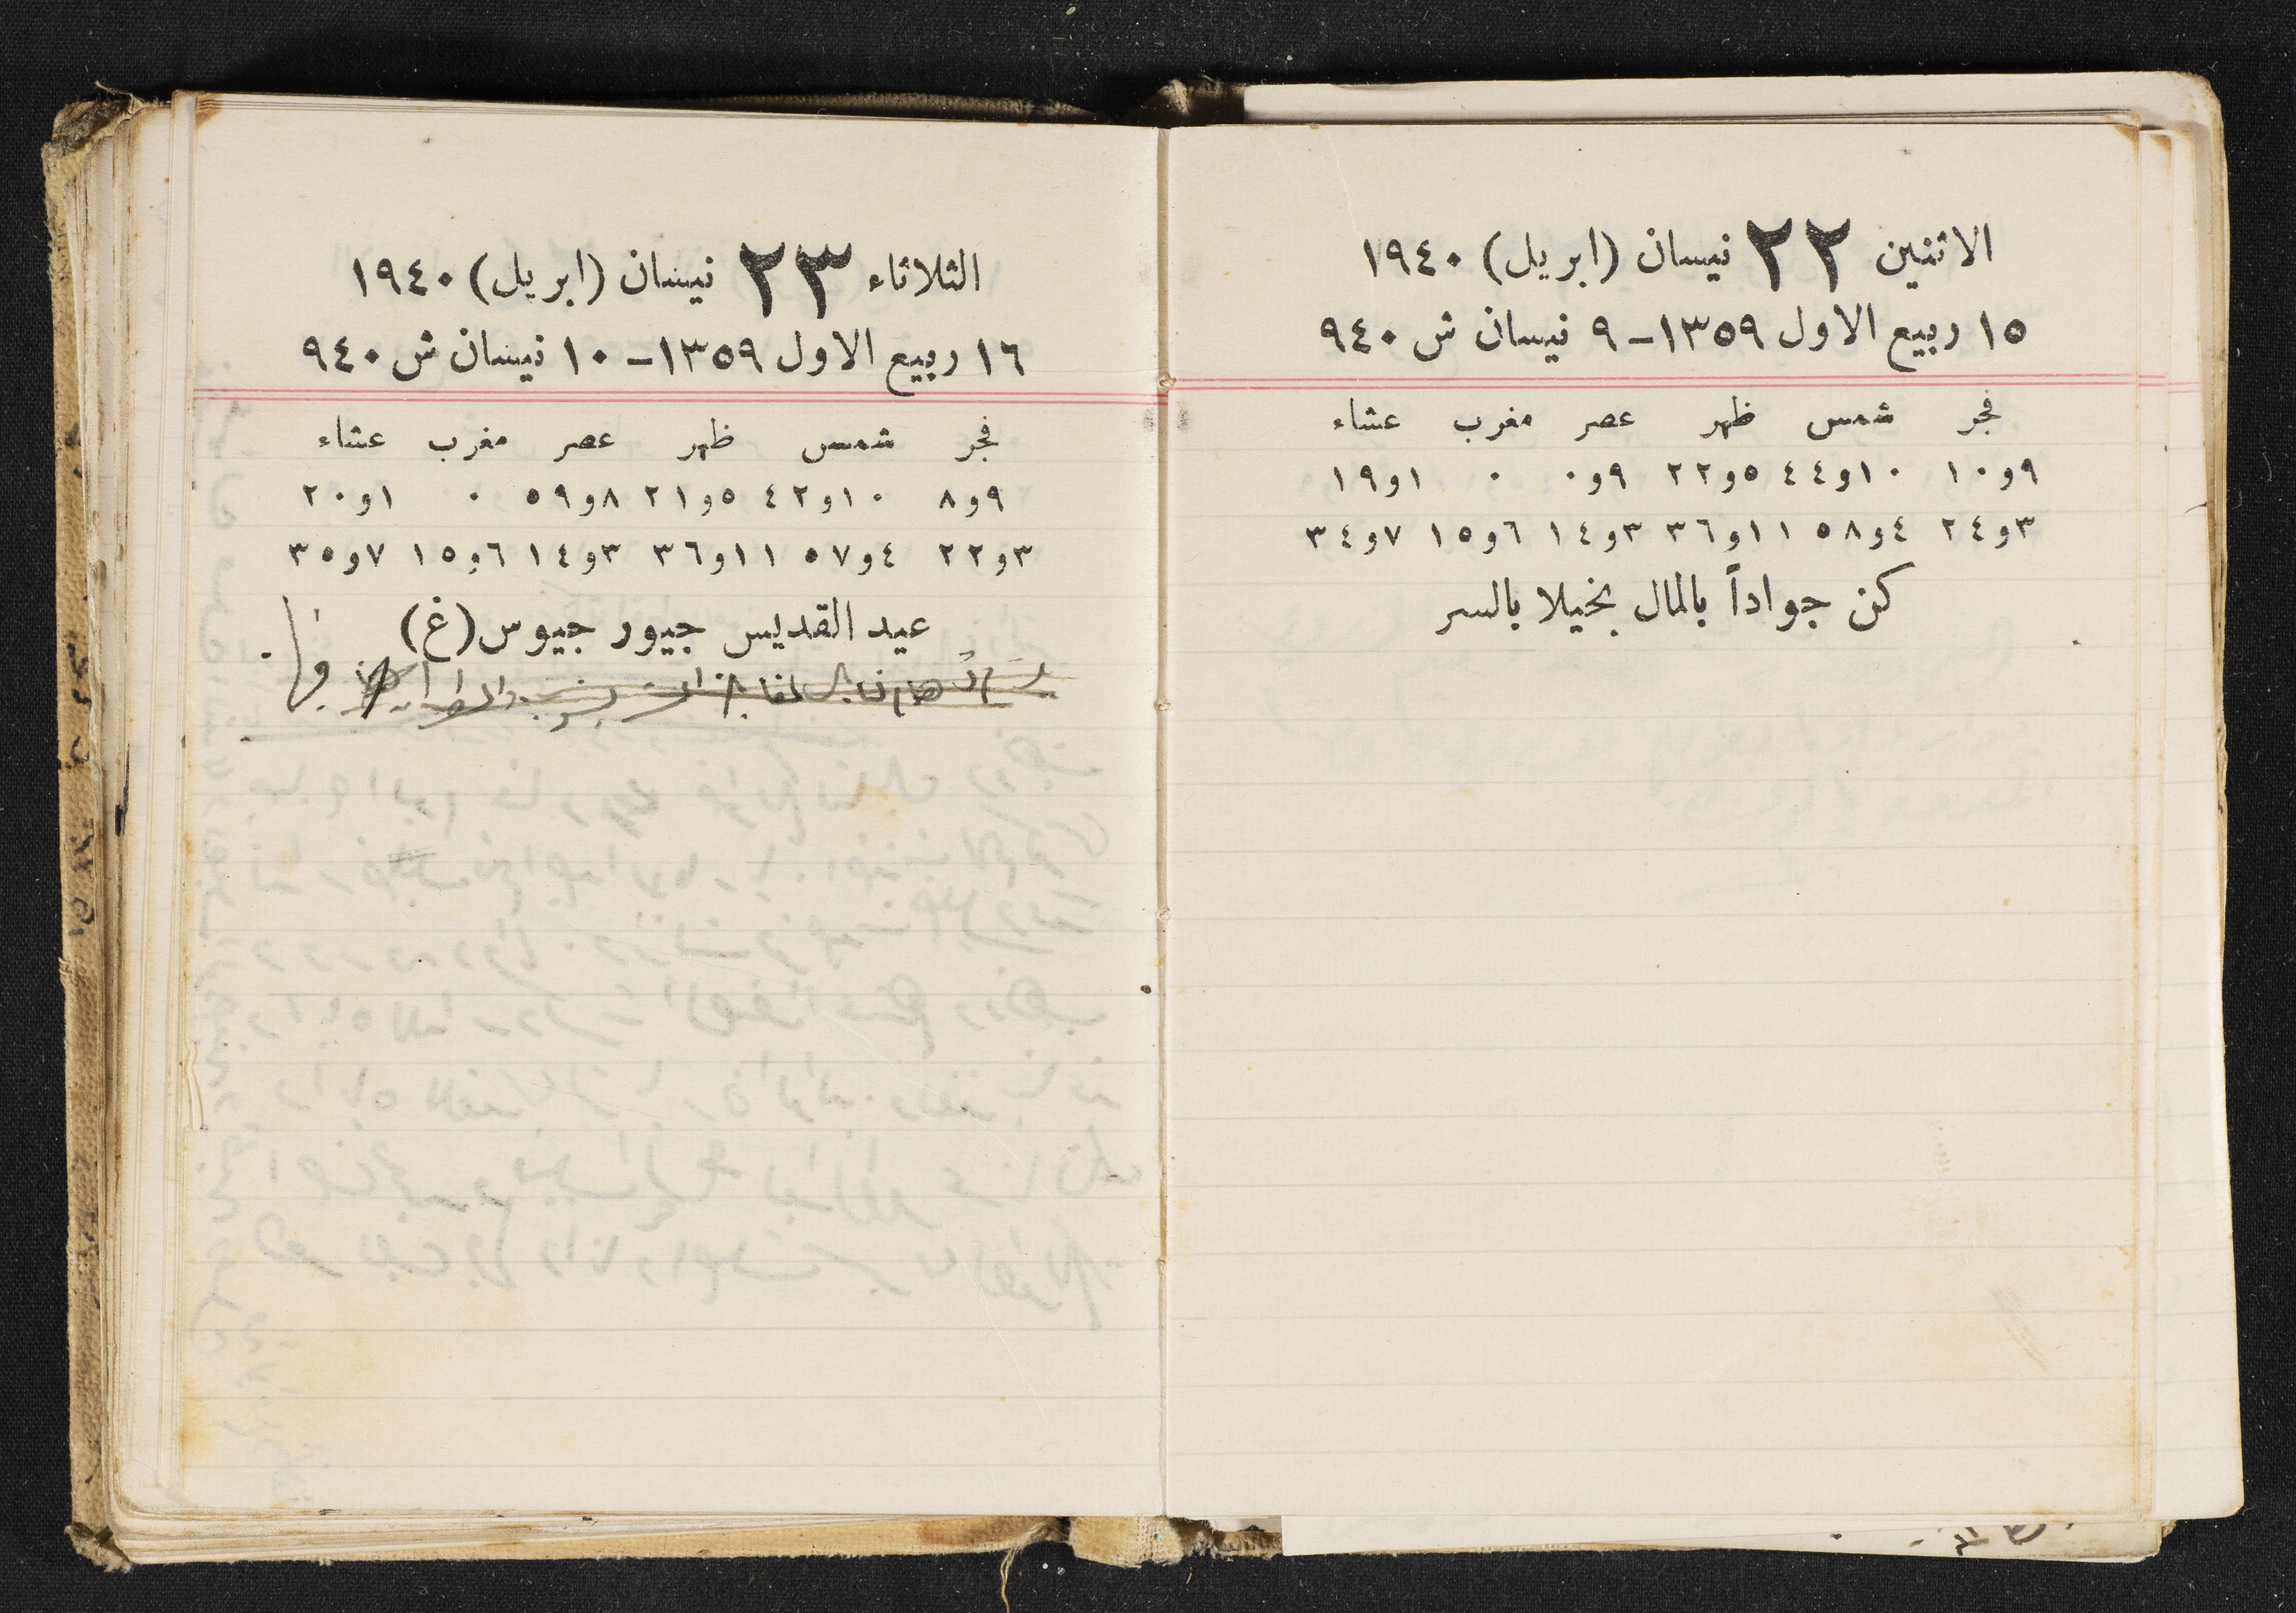 الاثنين ٢٢ نيسان (ابريل) ١٩٤٠
١٥ ربيع الاول ١٣٥٩ - ٩ نيسان ش ٩٤٠
فجر شمس ظهر عصر مغرب عشاء
٩و١٠ ١٠و٤٤ ٥و٢٢ ٩و٠ ٠ ١و١٩
٣و٢٤ ٤و٥٨ ١١و٣٦ ٣و١٤ ٦و١٥ ٧و٣٤
كن جواداً بالمال بخيلا بالسر
الثلاثاء ٢٣ نيسان (ابريل) ١٩٤٠
١٦ ربيع الاول ١٣٥٩ - ١٠ نيسان ش ٩٤٠
فجر شمس ظهر عصر مغرب عشاء
٩و٨ ١٠و٤٢ ٥و٢١ ٨و٥٩ ٠ ١و٢٠
٣و٢٢ ٤و٥٧ ١١و٣٦ ٣و١٤ ٦و١٥ ٧و٣٥
عيد القديس جيورجيوس (غ)